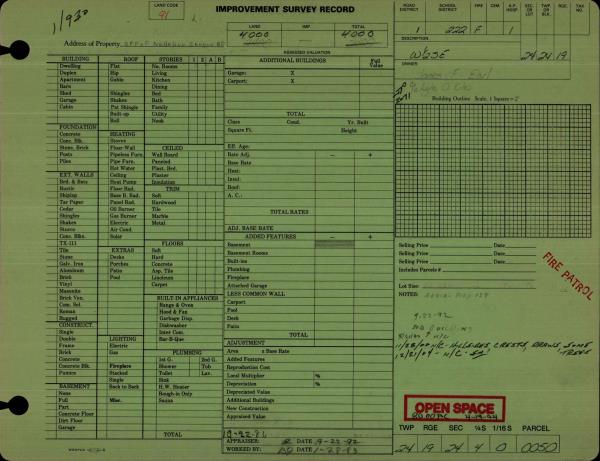 LAND CODE
91
IMPROVEMENT SURVEY RECORD
LAND IMP. TOTAL
4000 4000
ASSESSED VALUATION
Address of Property
ROAD DISTRICT SCHOOL DISTRICT A.P. HOSP SEC OR LOT TWP OR BLK. RGE. TAX NO.
1 222 F 1
W2SE 24 24 19
OWNER
Building Outline Scale, 1 Square = 2'
BUILDING ROOF STORIES 1 2 A B
Dwelling Flat No. Rooms
Duplex Hip Living
Apartment Gable Kitchen
Barn Dining
Shed Shingles Bed
Garage Shakes Bath
Cabin Pat Shingle Family
Built-up Utility
Roll Nook
FOUNDATION
Concrete HEATING
Conc. Blk. Stoves CEILED
Stone, Brick Floor-Wall Wall Board
Posts Pipeless Furn. Paneled
Piles Pipe Furn. Plast. Brd.
Hot Water Plaster
EXT. WALLS Ceiling Insulation
Brd. & Bats Heat Pump
Rustic Floor Rad. TRIM
Shiplap Base B. Rad. Soft
Tar Paper Panel Rad. Hardwood
Cedar Oil Burner Tile
Shingles Gas Burner Marble
Shakes Electric Metal
Stucco Air Cond.
Conc. Blks. Solar
TX-111 FLOORS
Tile EXTRAS Soft
Stone Decks Hard
Galv. Iron Porches Concrete
Aluminum Patio Asp. Tile
Brick Pool Linoleum
Vinyl Carpet
Masonite
Brick Ven. BUILT-IN APPLIANCES
Com. Sel. Range & Oven
Roman Hood & Fan
Rugged Garbage Disp.
CONSTRUCT. Dishwasher
Single Inter Com.
Double LIGHTING Bar-B-Que
Frame Electric
Brick Gas PLUMBING
Concrete 1st G. 2nd G.
Concrete Blk. Fireplace Shower Tub
Pumice Stacked Toilet Lav.
Single Sink
BASEMENT Back to Back H.W. Heater
None Rough-in Only
Full Misc. Sauna
Part
Concrete Floor
Dirt Floor
Garage TOTAL
ADDITIONAL BUILDINGS Full Value
Garage: X
Carport: X
TOTAL
Class Cond. Yr. Built
Square Ft. Height
Eff. Age:
Rate Adj. − +
Base Rate
Heat:
Insul:
Bsmt:
A. C.:
TOTAL RATES
ADJ. BASE RATE
ADDED FEATURES − +
Basement
Basement Rooms
Built-ins
Plumbing
Fireplace
Attached Garage
LESS COMMON WALL
Carport
Pool
Deck
Patio
TOTAL
ADJUSTMENT
Area x Base Rate
Added Features
Reproduction Cost
Local Multiplier %
Depreciation %
Depreciated Value
Additional Buildings
New Construction
Appraised Value
APPRAISER: DATE 9-22-92
WORKED BY: DATE 1-28-93
Selling Price Date
Selling Price Date
Selling Price Date
Includes Parcels #
FIRE PATROL
Lot Size
NOTES:
9-22-92
OPEN SPACE
TWP RGE SEC ¼S 1/16S PARCEL
24 19 24 4 0 0050